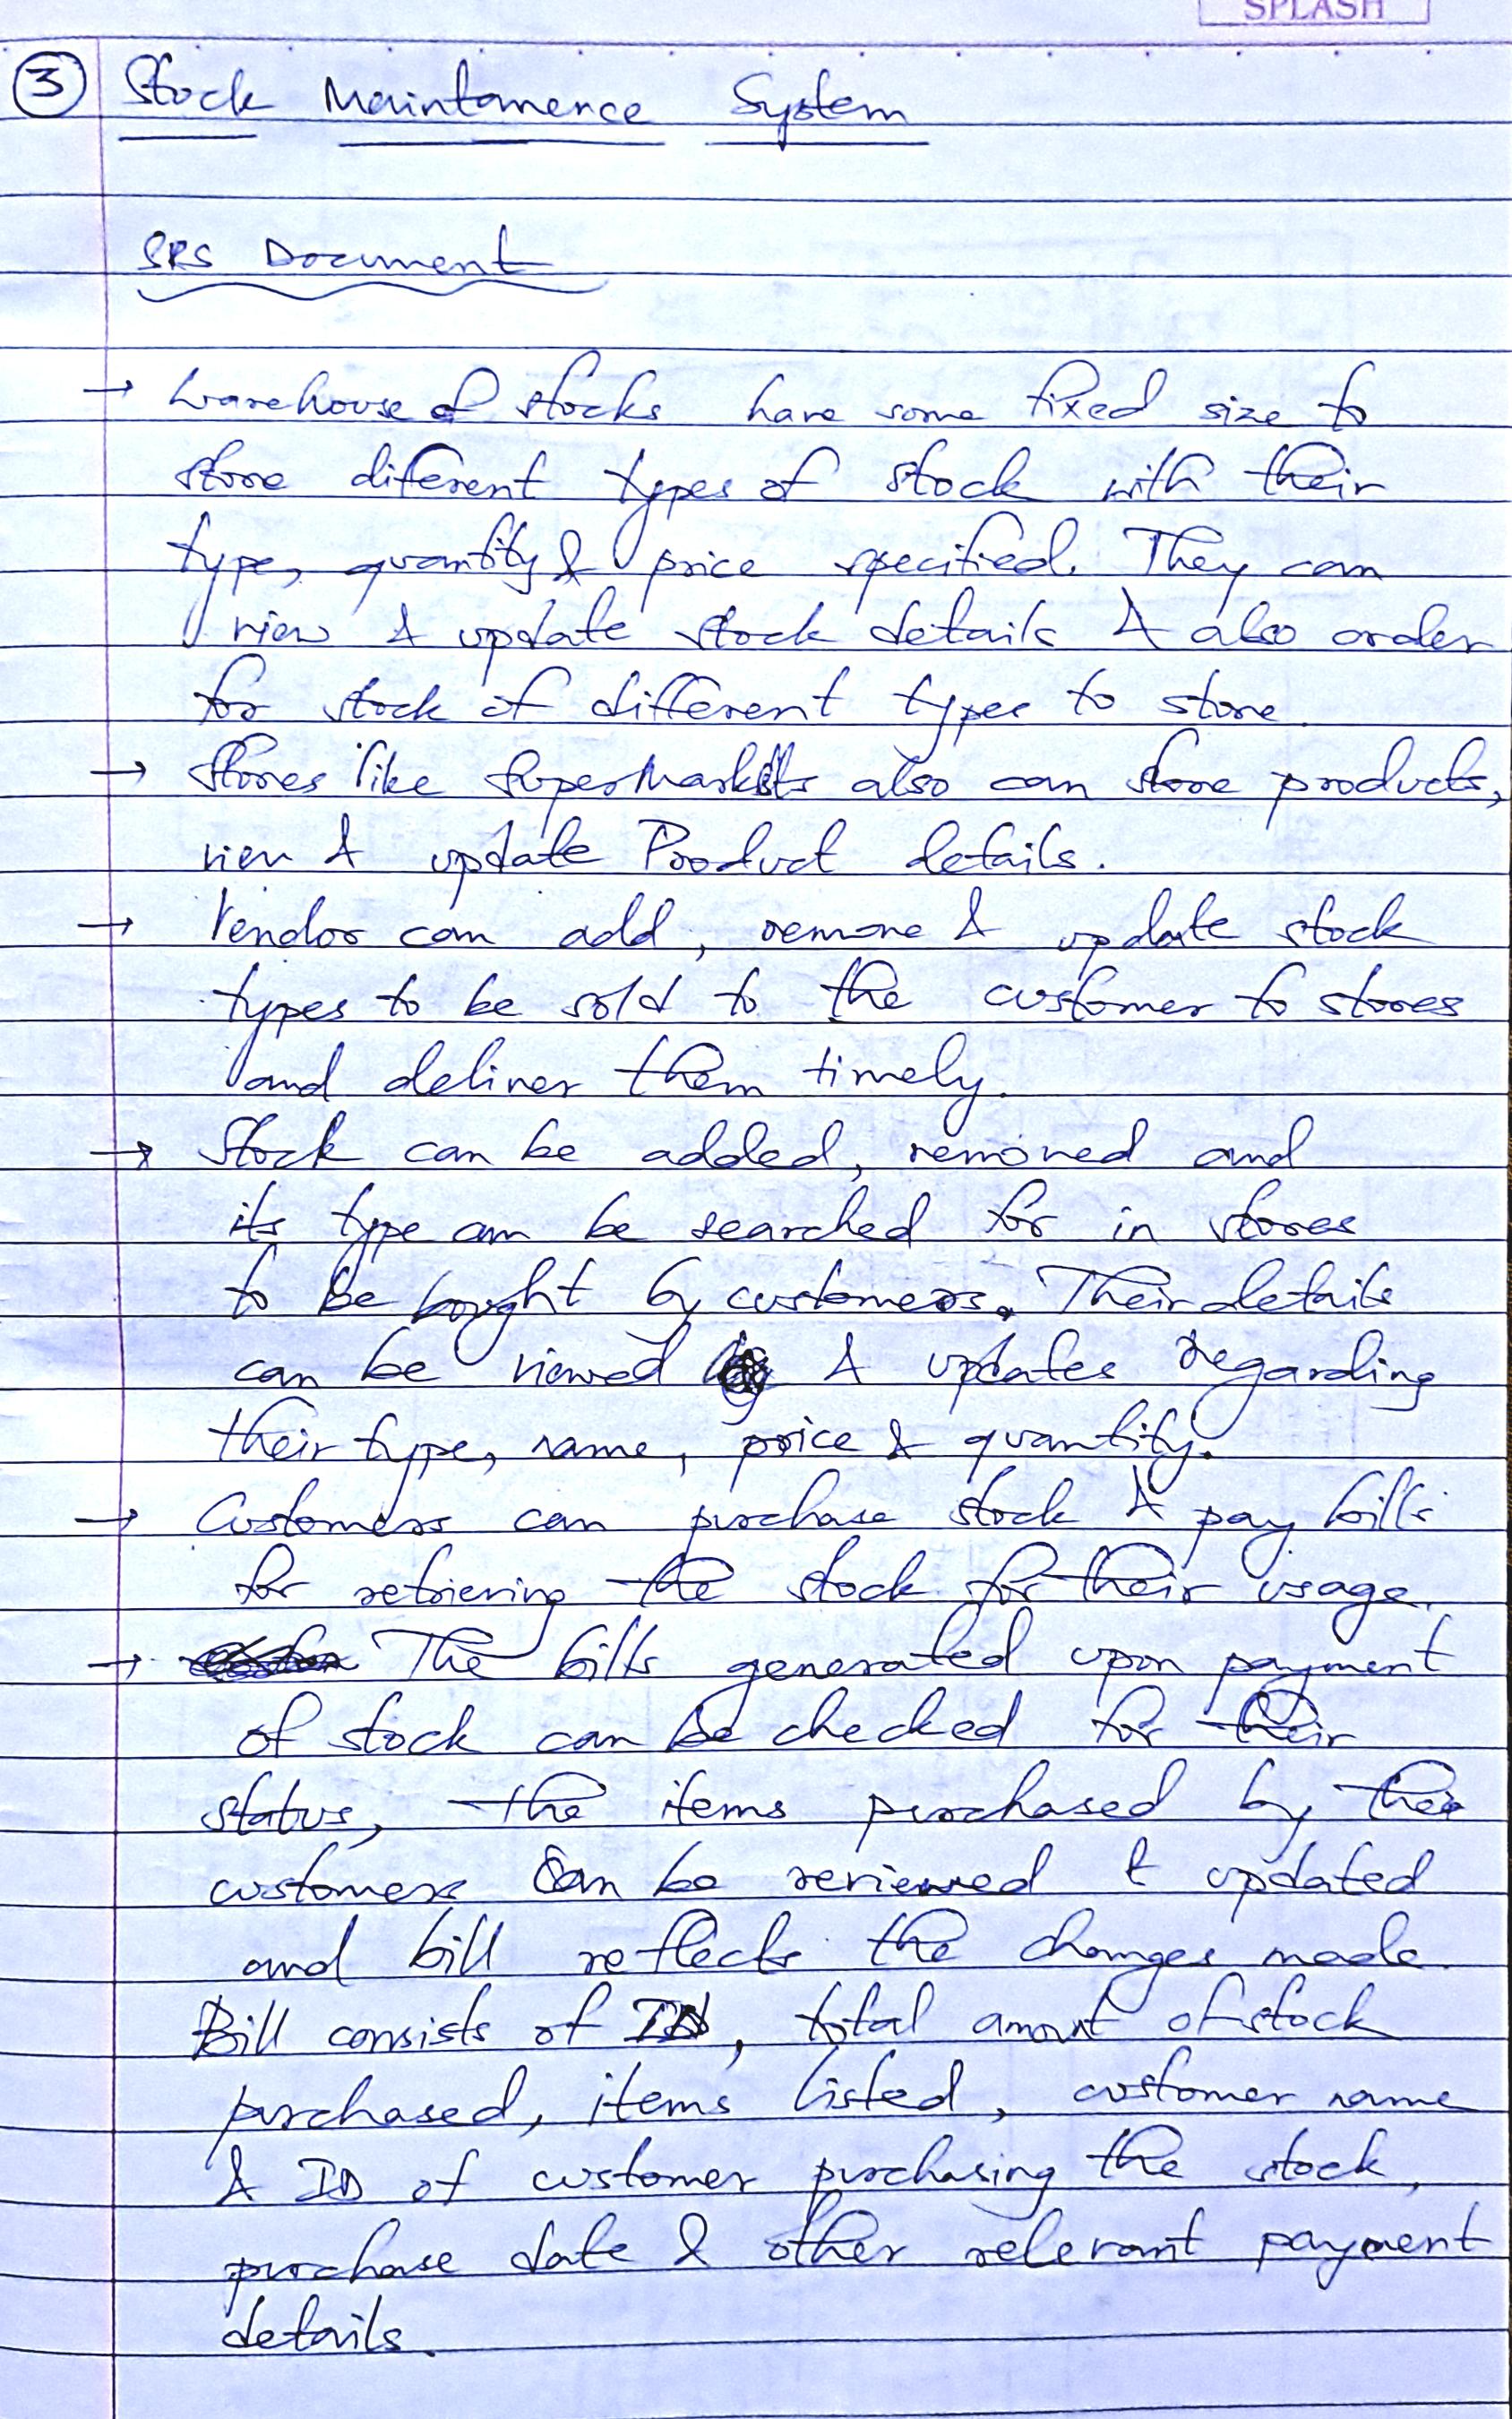 SPLASH
③ Stock Maintamence System
SRS Document
→ Warehouse of stocks have some fixed size to
store diferent types of stock with their
type, quantity & price specified. They can
view & update stock details & also order
for stock of different types to store.
→ Stores like SuperMarkets also can store products,
view & update Product details.
→ Vendor can add, remove & update stock
types to be sold to the customer to stores
and deliver them timely.
→ Stock can be added, removed and
its type can be searched for in stores
to be bought by customers. Their details
can be viewed & updates regarding
their type, name, price & quantity.
→ Customers can purchase stock & pay bills
for retrieving the stock for their usage.
→ The bills generated upon payment
of stock can be checked for their
status, the items purchased by the
customers can be reviewed & updated
and bill reflects the changes made.
Bill consists of ID, total amount of stock
purchased, items listed, customer name
& ID of customer purchasing the stock,
purchase date & other relevant payment
details.